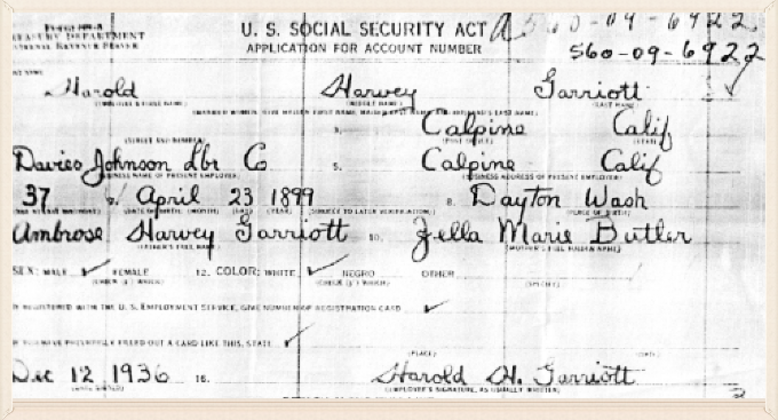 TREASURY DEPARTMENT
INTERNAL REVENUE SERVICE
U. S. SOCIAL SECURITY ACT
APPLICATION FOR ACCOUNT NUMBER
560-09-6922
560-09-6922
Harold Harvey Garriott
(MIDDLE NAME) (LAST NAME)
Calpine Calif
(STREET AND NUMBER) (POST OFFICE) (STATE)
Davies Johnson Lbr Co 5. Calpine Calif
(BUSINESS NAME OF PRESENT EMPLOYER) (BUSINESS ADDRESS OF PRESENT EMPLOYER)
37 7. April 23 1899 8. Dayton Wash
(DATE OF BIRTH: (MONTH) (DAY) (YEAR) (SUBJECT TO LATER VERIFICATION) (PLACE OF BIRTH)
Ambrose Harvey Garriott 10. Zella Marie Butler
(FATHER'S FULL NAME) (MOTHER'S FULL MAIDEN NAME)
SEX: MALE ✓ FEMALE 12. COLOR: WHITE ✓ NEGRO OTHER
(CHECK (✓) WHICH) (CHECK (✓) WHICH) (SPECIFY)
REGISTERED WITH THE U. S. EMPLOYMENT SERVICE, GIVE NUMBER OF REGISTRATION CARD ✓
YOU HAVE PREVIOUSLY FILLED OUT A CARD LIKE THIS, STATE ✓
(PLACE) (DATE)
Dec 12 1936 16. Harold H. Garriott
(DATE SIGNED) (EMPLOYEE'S SIGNATURE, AS USUALLY WRITTEN)